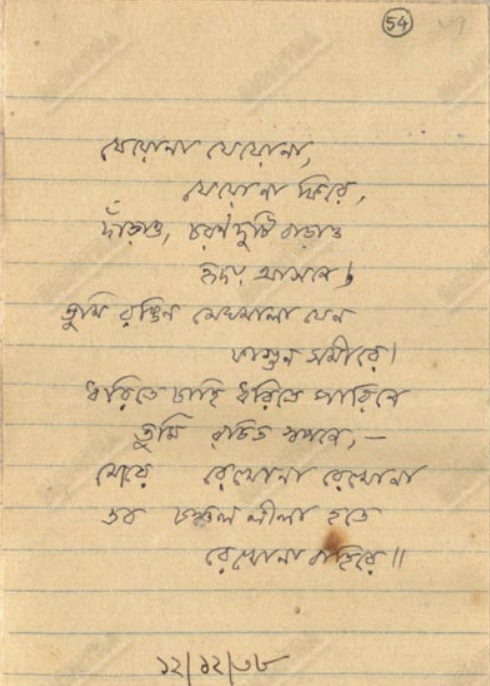 54
যেয়োনা যেয়োনা,
যেয়োনা ফিরে,
দাঁড়াও, চরণদুটি বাড়াও
হৃদয় আসনে।
তুমি রঙিন মেঘমালা যেন
ফাগুন সমীরে।
ধরিতে চাহি ধরিতে পারিনে
তুমি রচিত স্বপনে,—
মোরে রেখোনা রেখোনা
তব চঞ্চল লীলা হতে
রেখোনা বাহিরে॥
১২/১২/৩৮